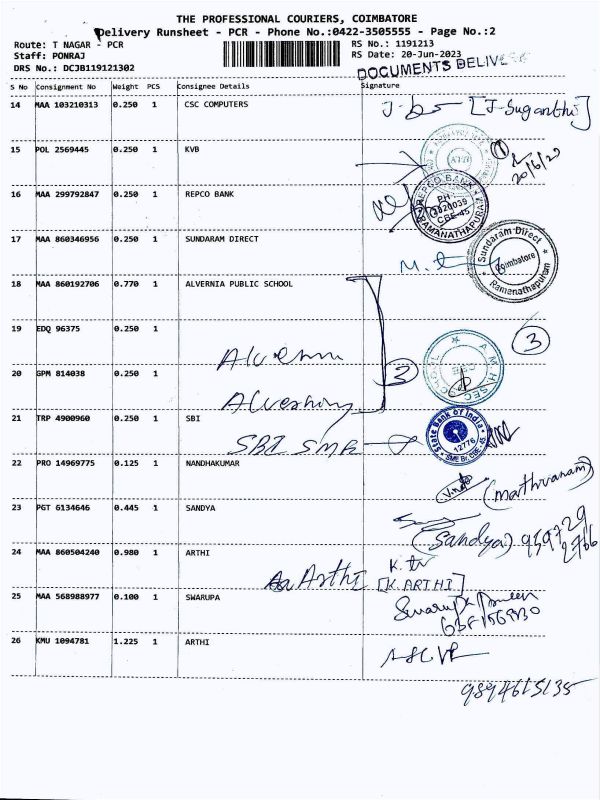 THE PROFESSIONAL COURIERS, COIMBATORE
Delivery Runsheet - PCR - Phone No.:0422-3505555 - Page No.:2
Route: T NAGAR - PCR
RS No.: 1191213
Staff: PONRAJ
RS Date: 20-Jun-2023
DRS No.: DCJB119121302
DOCUMENTS DELIVE
S No Consignment No Weight PCS Consignee Details Signature
14 MAA 103210313 0.250 1 CSC COMPUTERS
[J-Suganthi]
15 POL 2569445 0.250 1 KVB
1
20/6/23
16 MAA 299792847 0.250 1 REPCO BANK
REPCO BANK
PH
2320039
CBE-45
RAMANATHAPURAM
17 MAA 860346956 0.250 1 SUNDARAM DIRECT
Sundaram Direct
Coimbatore
Ramanathapuram
18 MAA 860192706 0.770 1 ALVERNIA PUBLIC SCHOOL
19 EDQ 96375 0.250 1
3
A.M.H.SEC SCHOOL
20 GPM 814038 0.250 1
2
21 TRP 4900960 0.250 1 SBI
SBI SME
State Bank of India
12776
SME Br, CBE-45
22 PRO 14969775 0.125 1 NANDHAKUMAR
23 PGT 6134646 0.445 1 SANDYA
(Sandya) 959729
2766
24 MAA 860504240 0.980 1 ARTHI
Arthi [K.ARTHI]
25 MAA 568988977 0.100 1 SWARUPA
Swarupa
26 KMU 1094781 1.225 1 ARTHI
9894615135